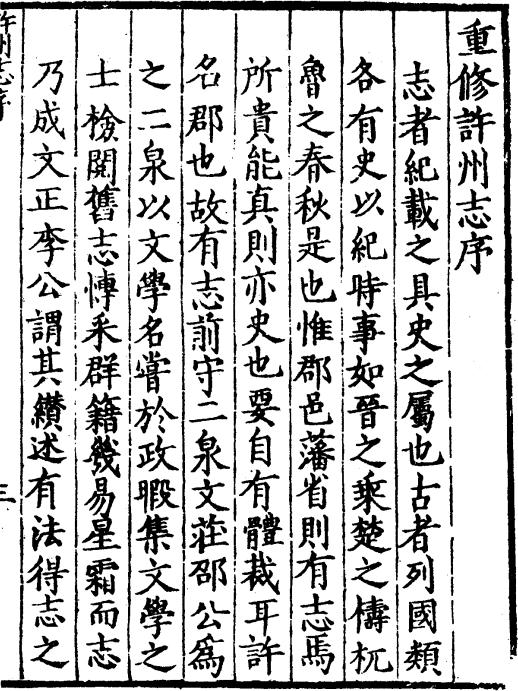 重修許州志序
志者紀載之具史之屬也古者列國類
各有史以紀時事如晉之乘楚之檮杌
魯之春秋是也惟郡邑藩省則有志焉
所貴能真則亦史也要自有體裁耳許
名郡也故有志前守二泉文莊邵公為
之二泉以文學名嘗於政暇集文學之
士檢閱舊志博采群籍幾易星霜而志
乃成文正李公謂其纉述有法得志之
許州志序
三